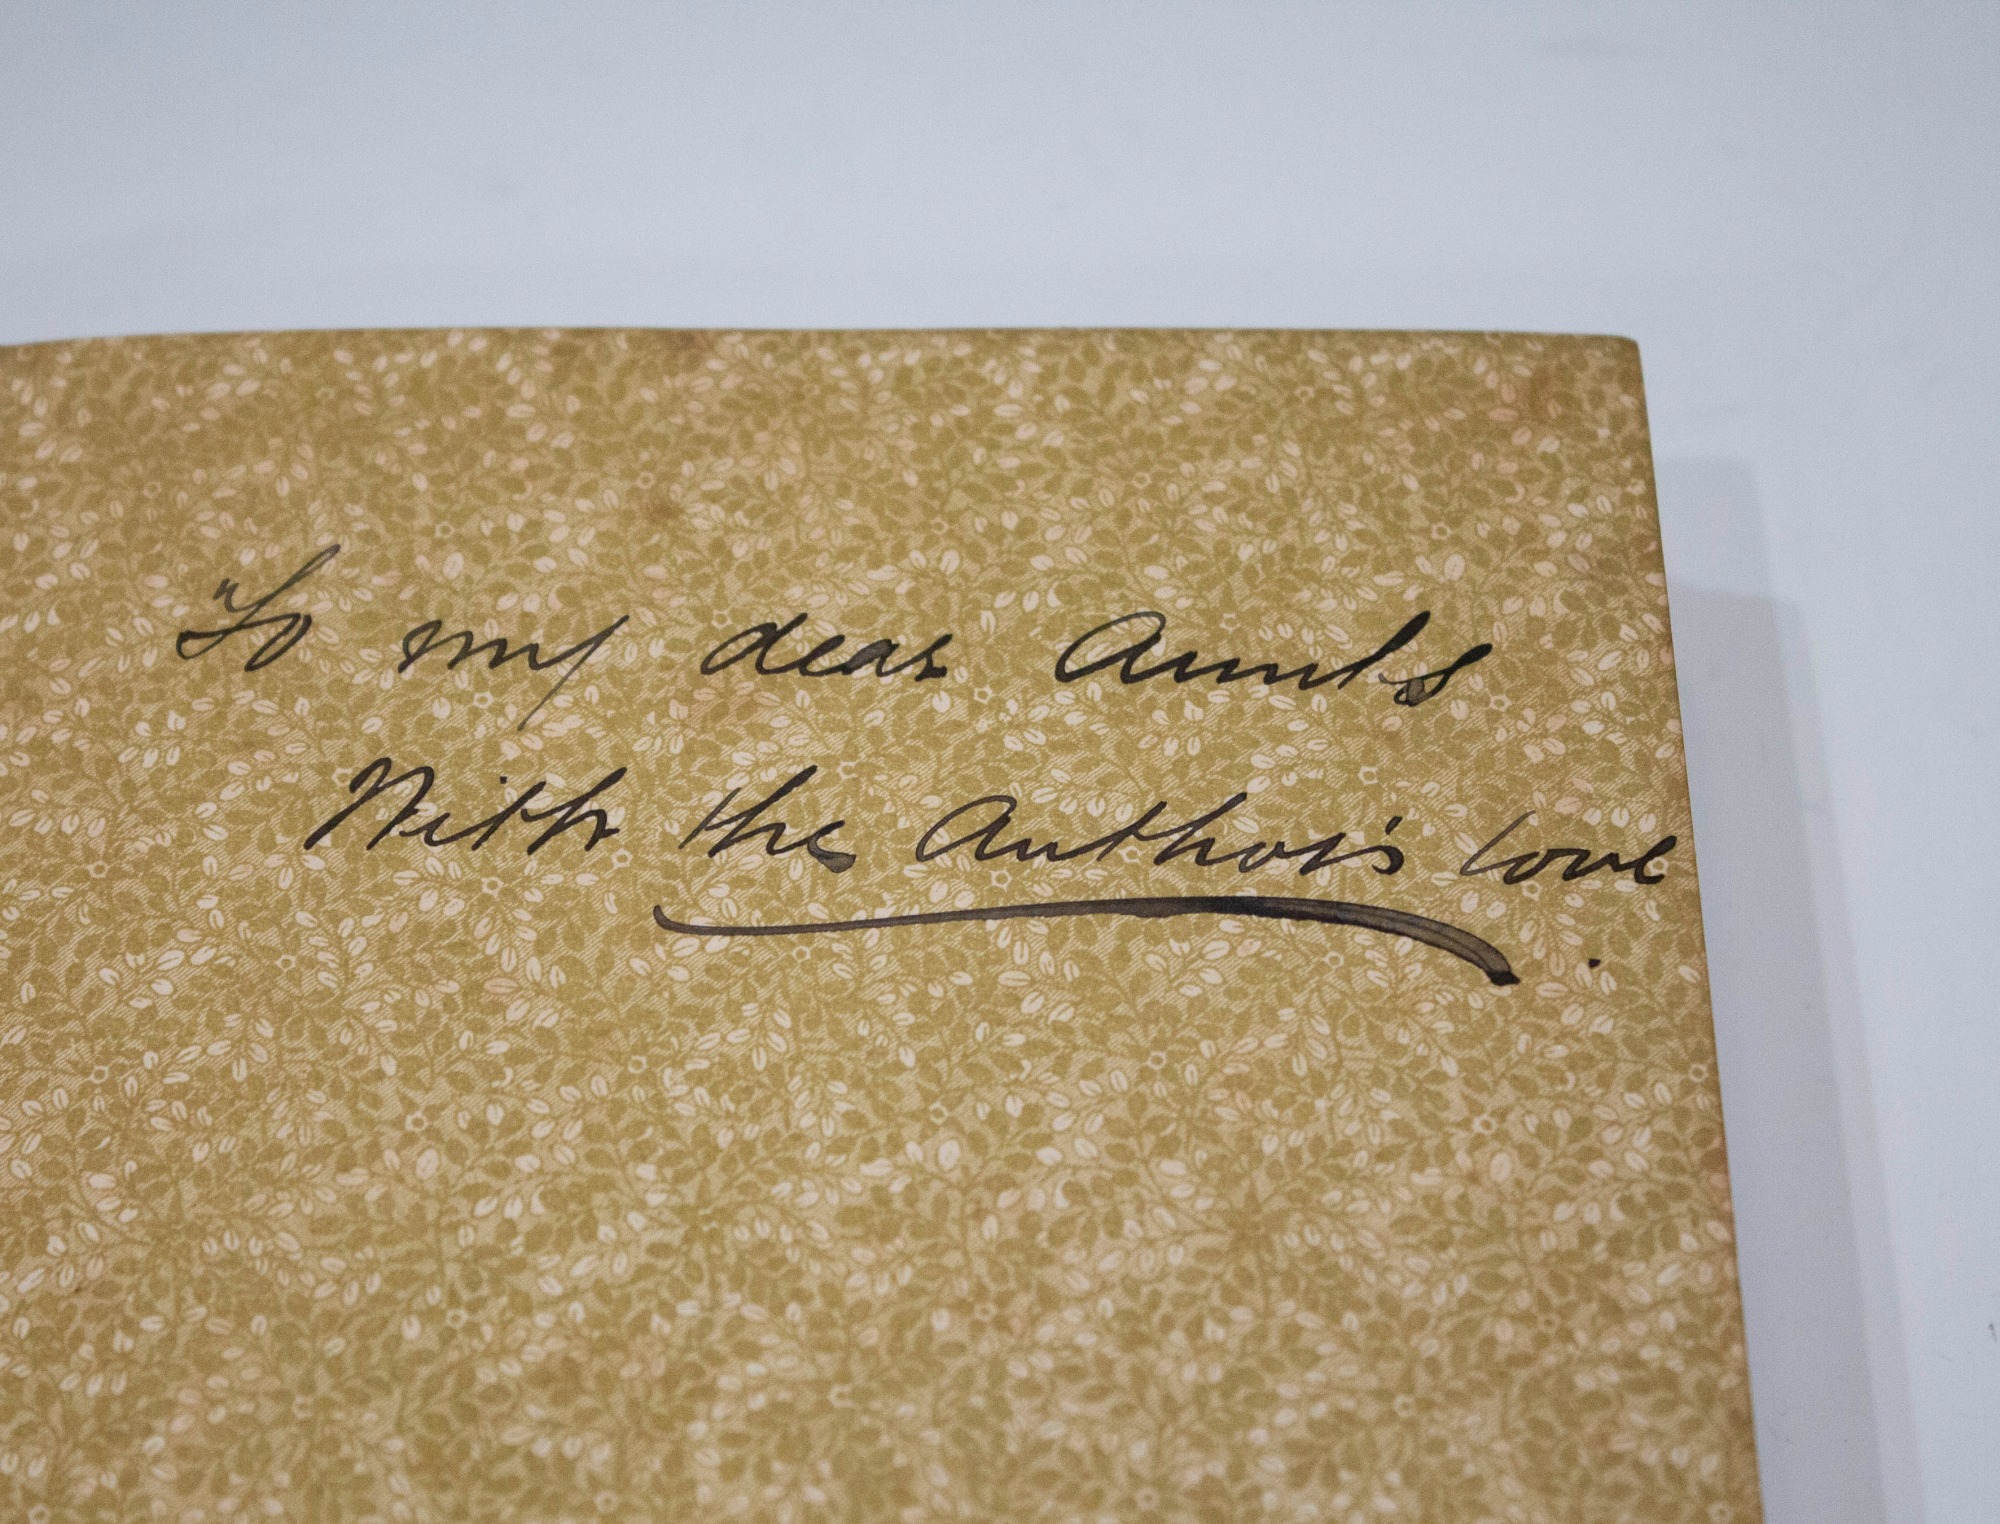 To my dear Aunts
With the Author's love